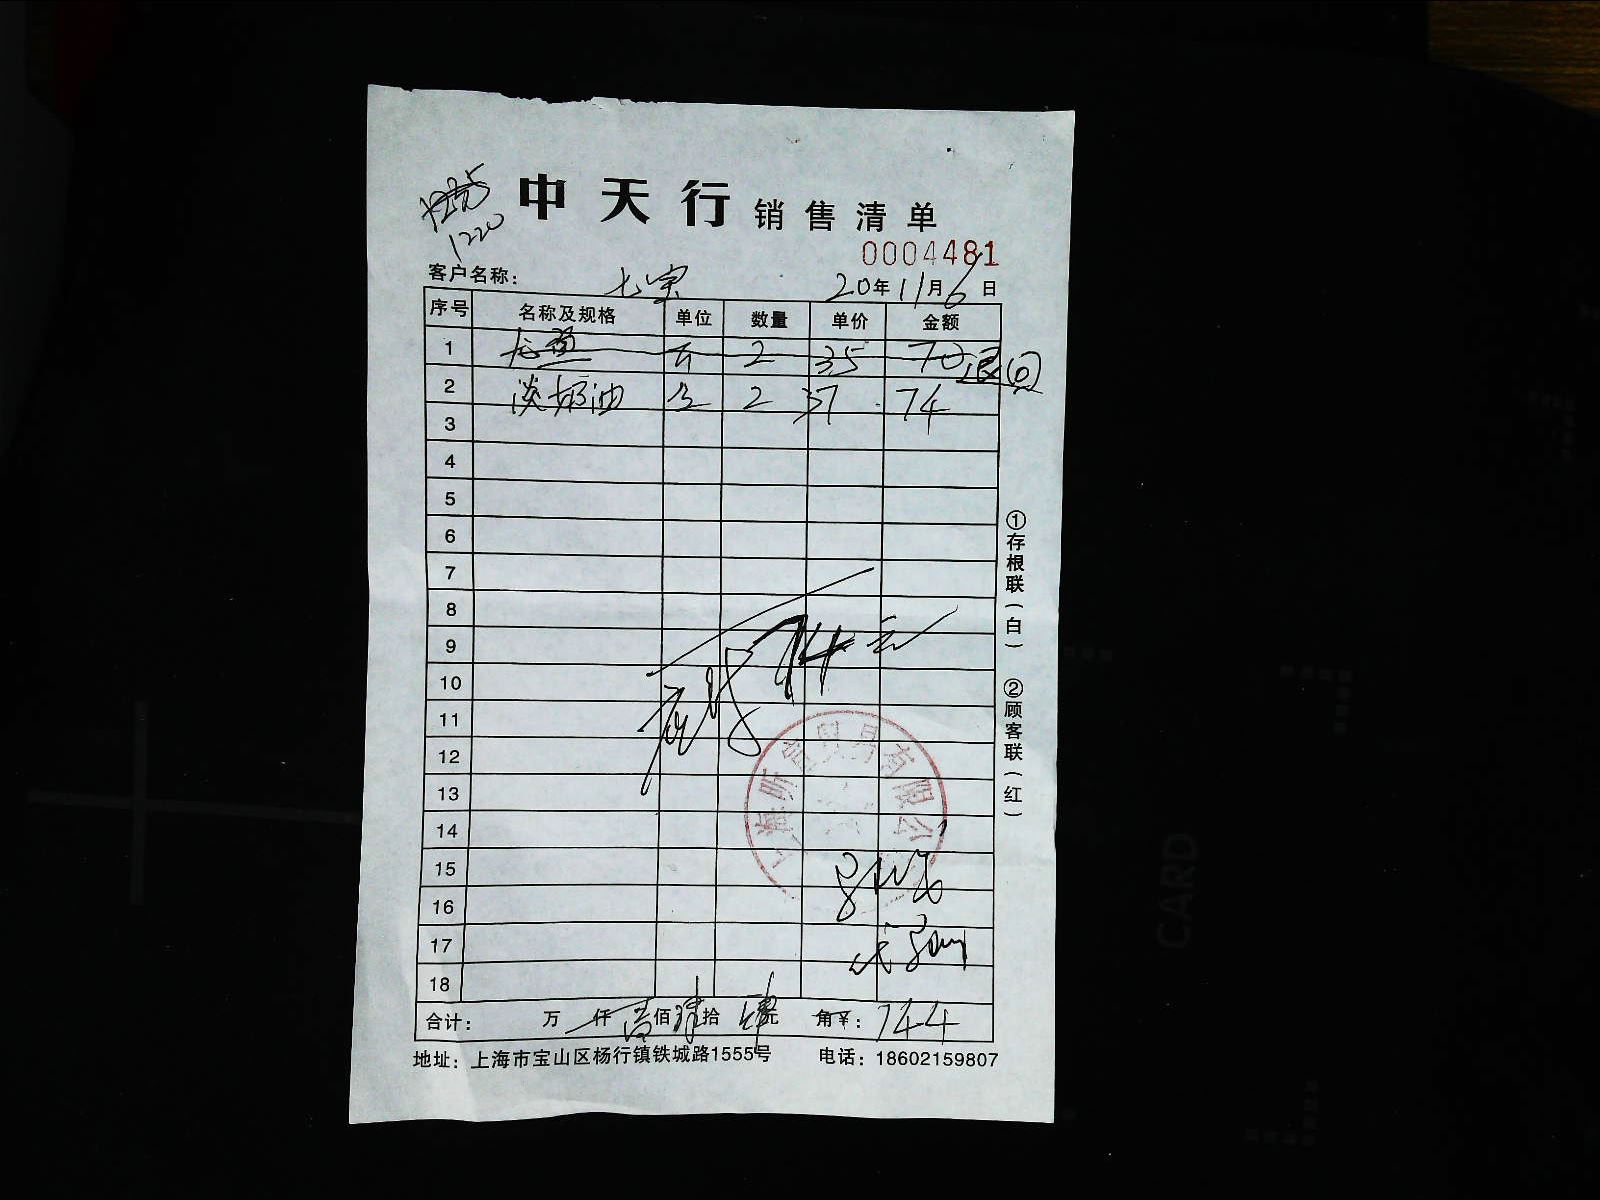 中天行 销售清单
1220
0004481
客户名称： 七宝 20年11月6日
序号 名称及规格 单位 数量 单价 金额
1 2 35 70 退回
2 淡奶油 2 37 74
3
4
5
6
7
8
9
10
11
12
13
14
15
16
17
18
74元
合计： 万 仟 壹佰 肆拾 肆元 角 ￥：144
地址：上海市宝山区杨行镇铁城路1555号 电话：18602159807
①存根联（白） ②顾客联（红）